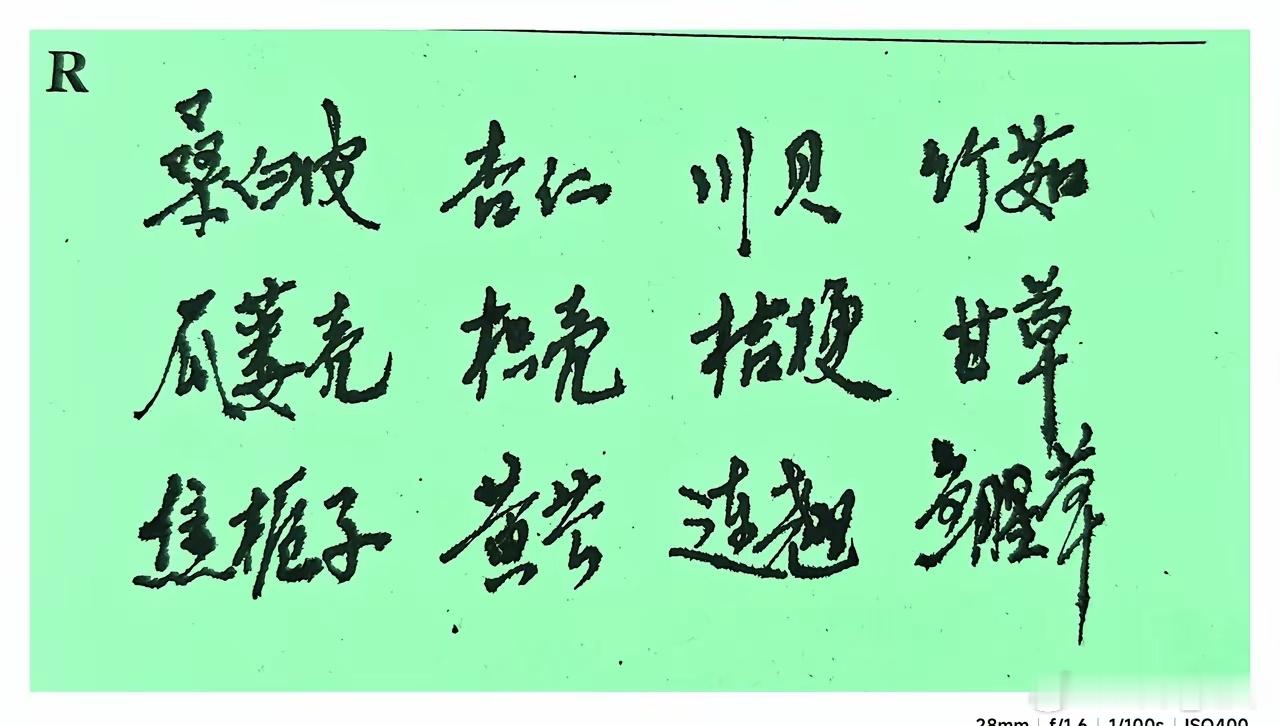 R
桑白皮 杏仁 川贝 竹茹
瓜蒌壳 枳壳 桔梗 甘草
焦栀子 黄芩 连翘 鱼腥草
28mm | f/1.6 | 1/100s | ISO400